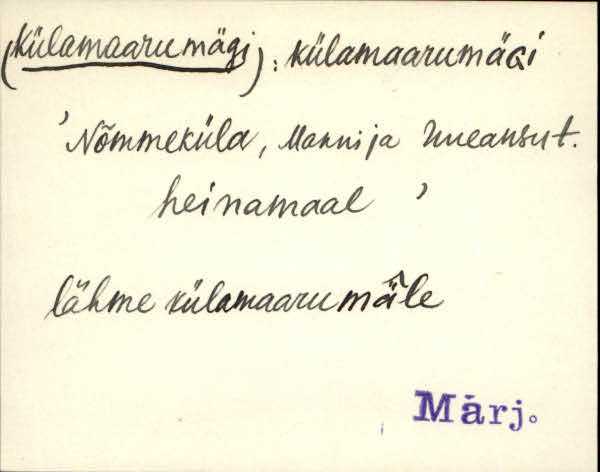 (Külamaarumägi): külamaarumäGi
'Nõmmeküla, Mannija Uueausut.
heinamaal'
lähme külamaarumäle
Märj.